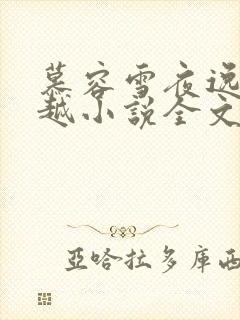 慕容雪夜逸
越小說全文
亞哈拉多庫西